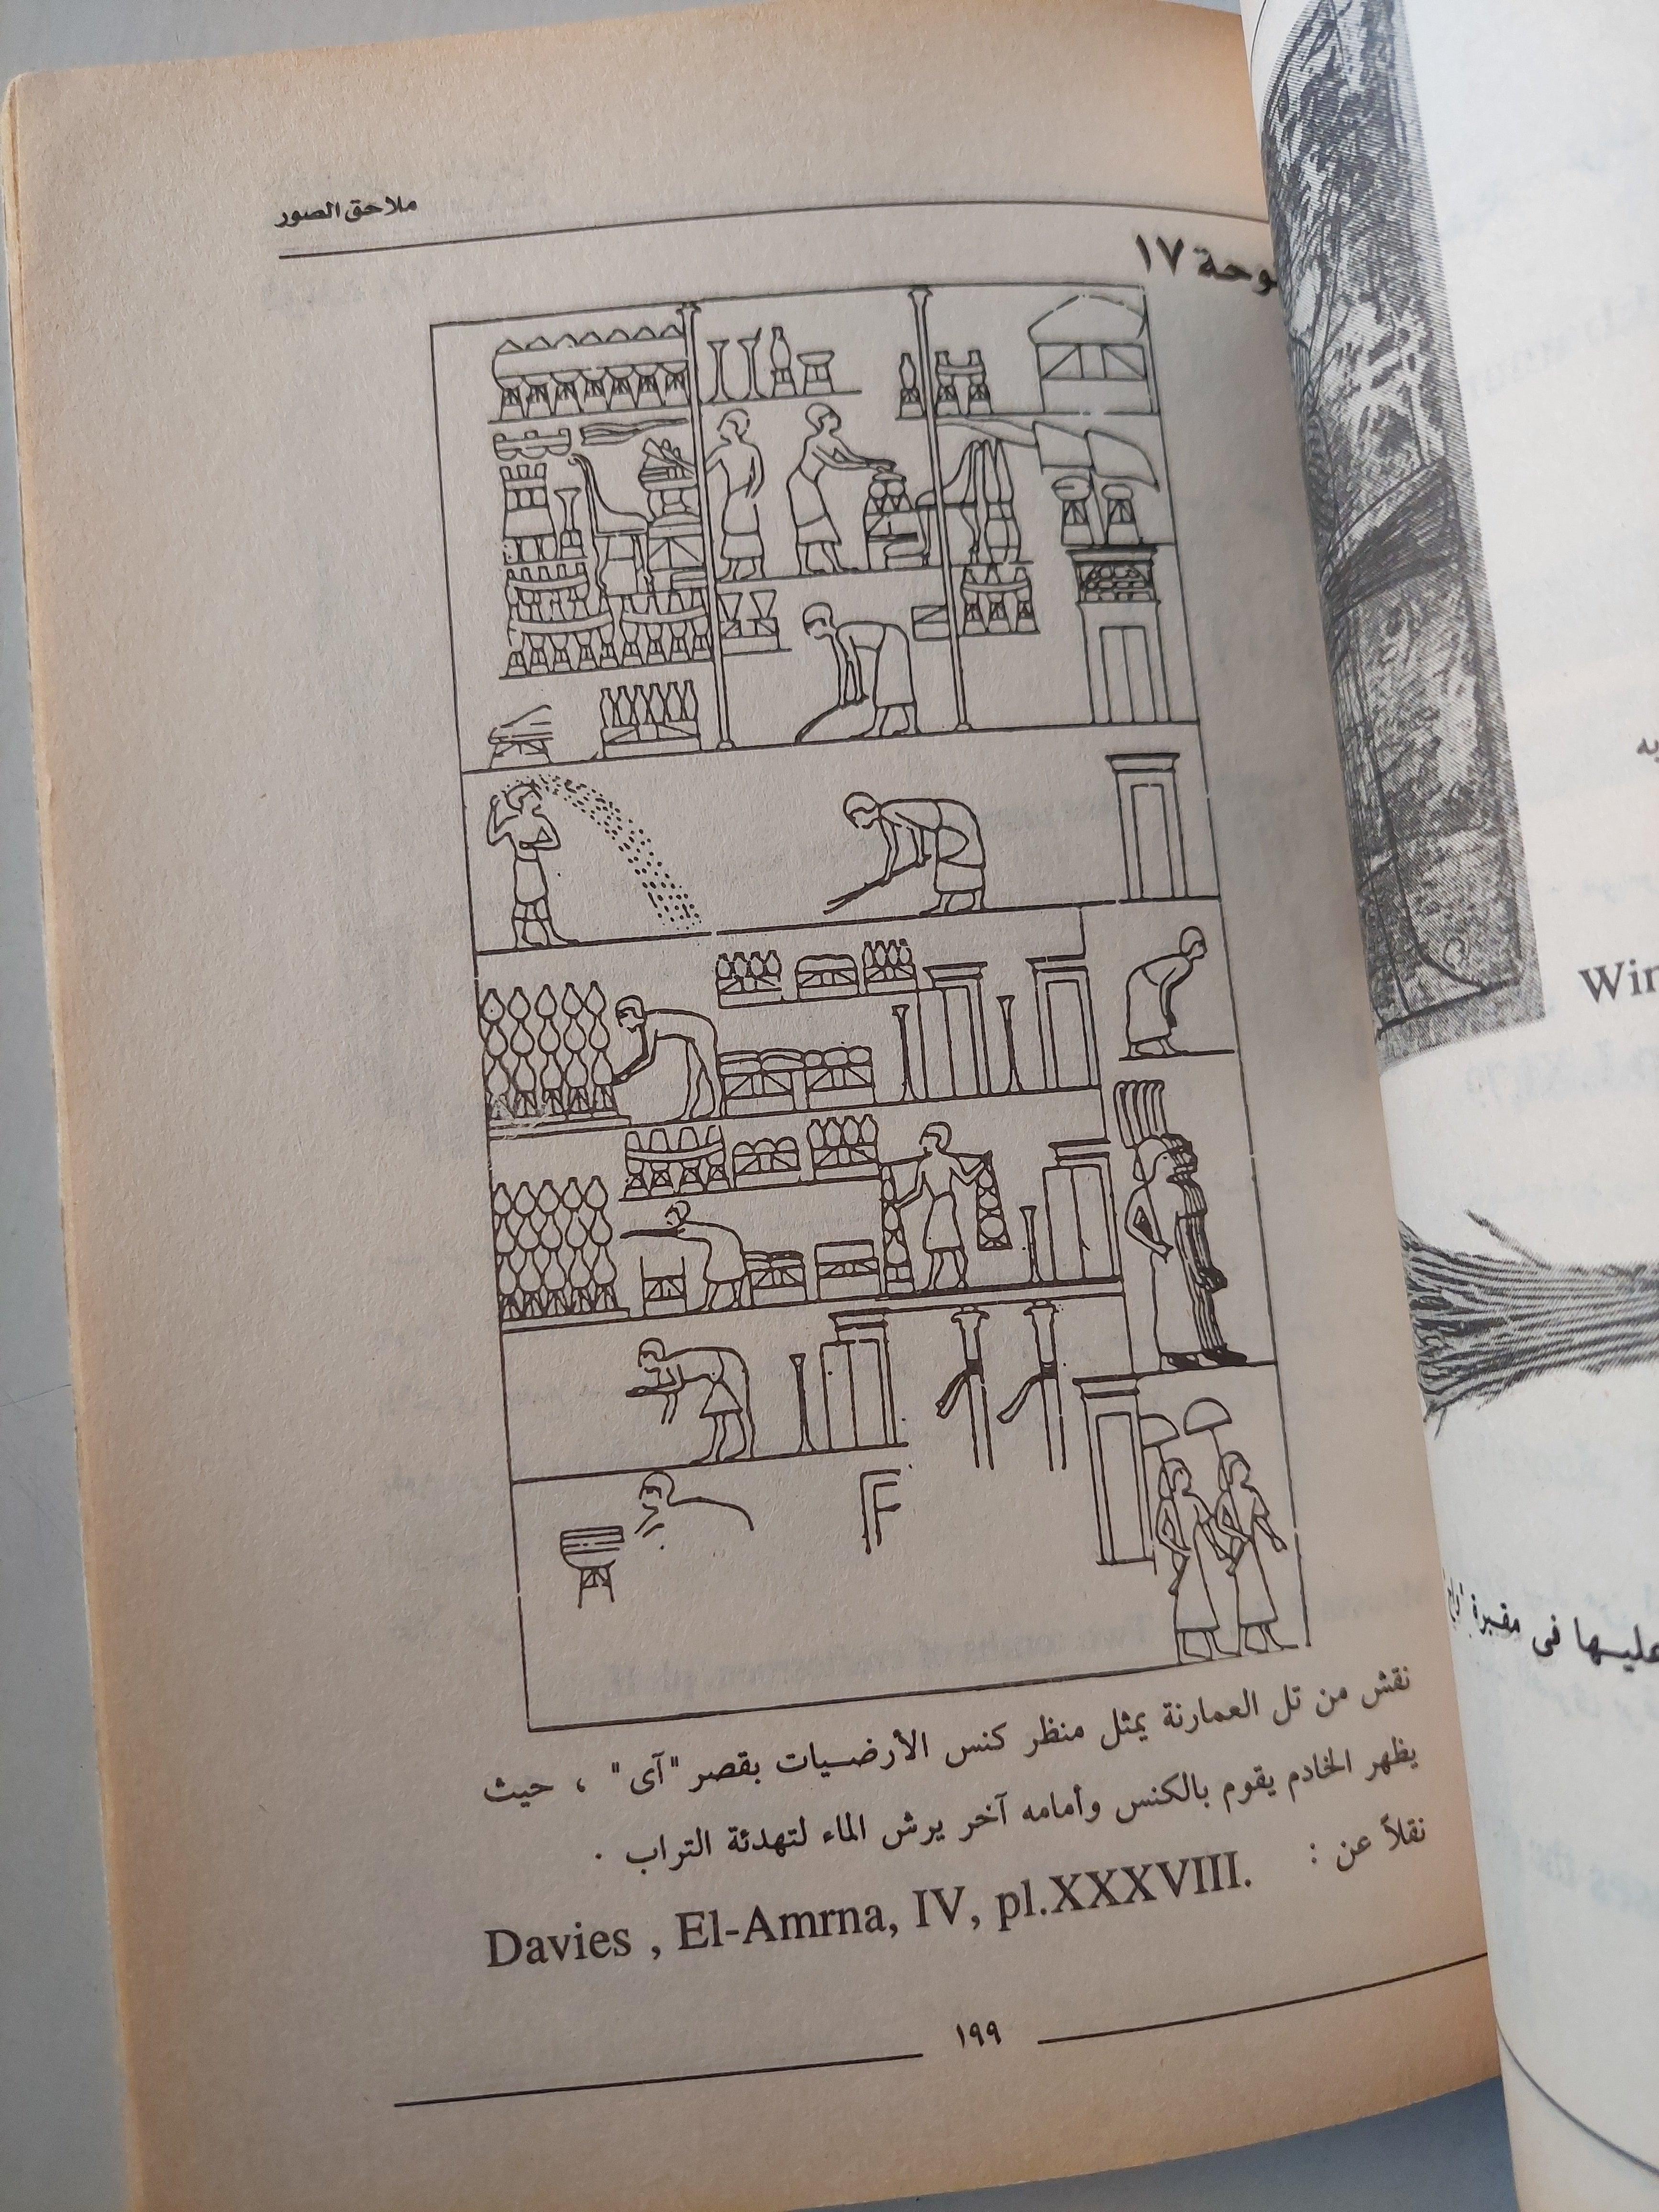 ملاحق الصور
لوحة ١٧
نقش من تل العمارنة يمثل منظر كنس الأرضيات بقصر "آى" ، حيث
يظهر الخادم يقوم بالكنس وأمامه آخر يرش الماء لتهدئة التراب .
نقلاً عن :
Davies , El-Amrna, IV, pl.XXXVIII.
١٩٩
Win
عليها فى مقبرة